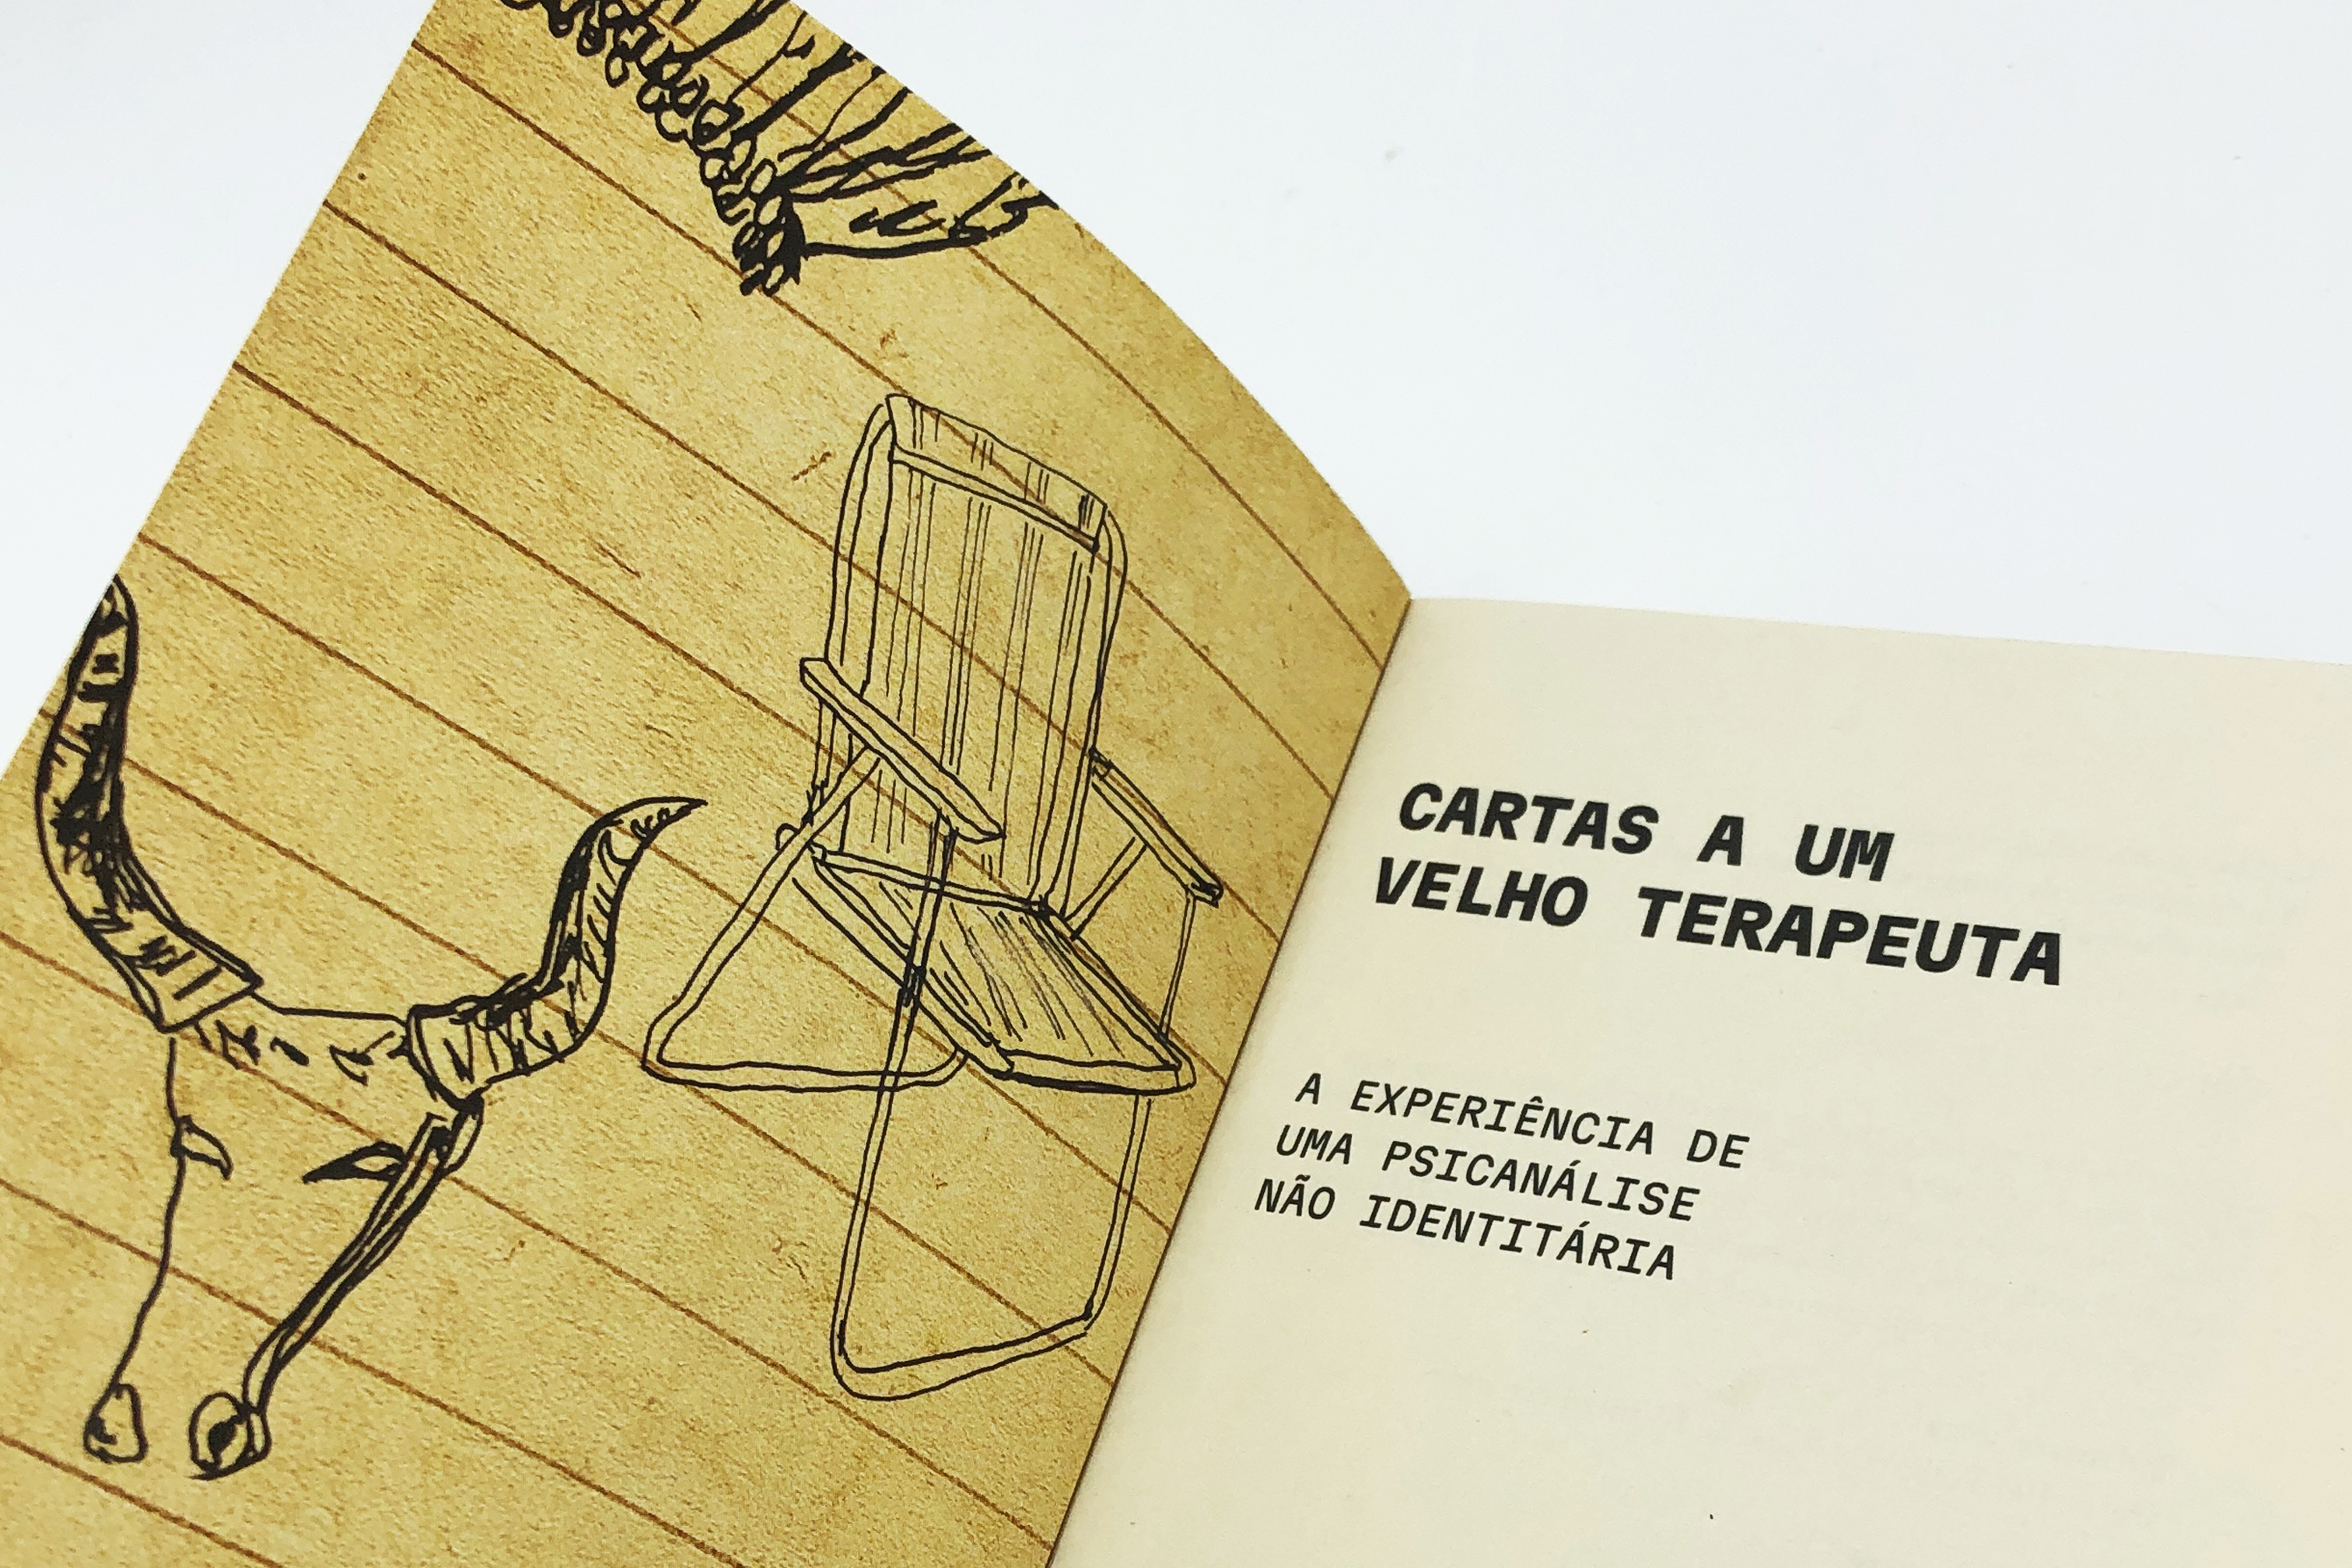 CARTAS A UM
VELHO TERAPEUTA
A EXPERIÊNCIA DE
UMA PSICANÁLISE
NÃO IDENTITÁRIA